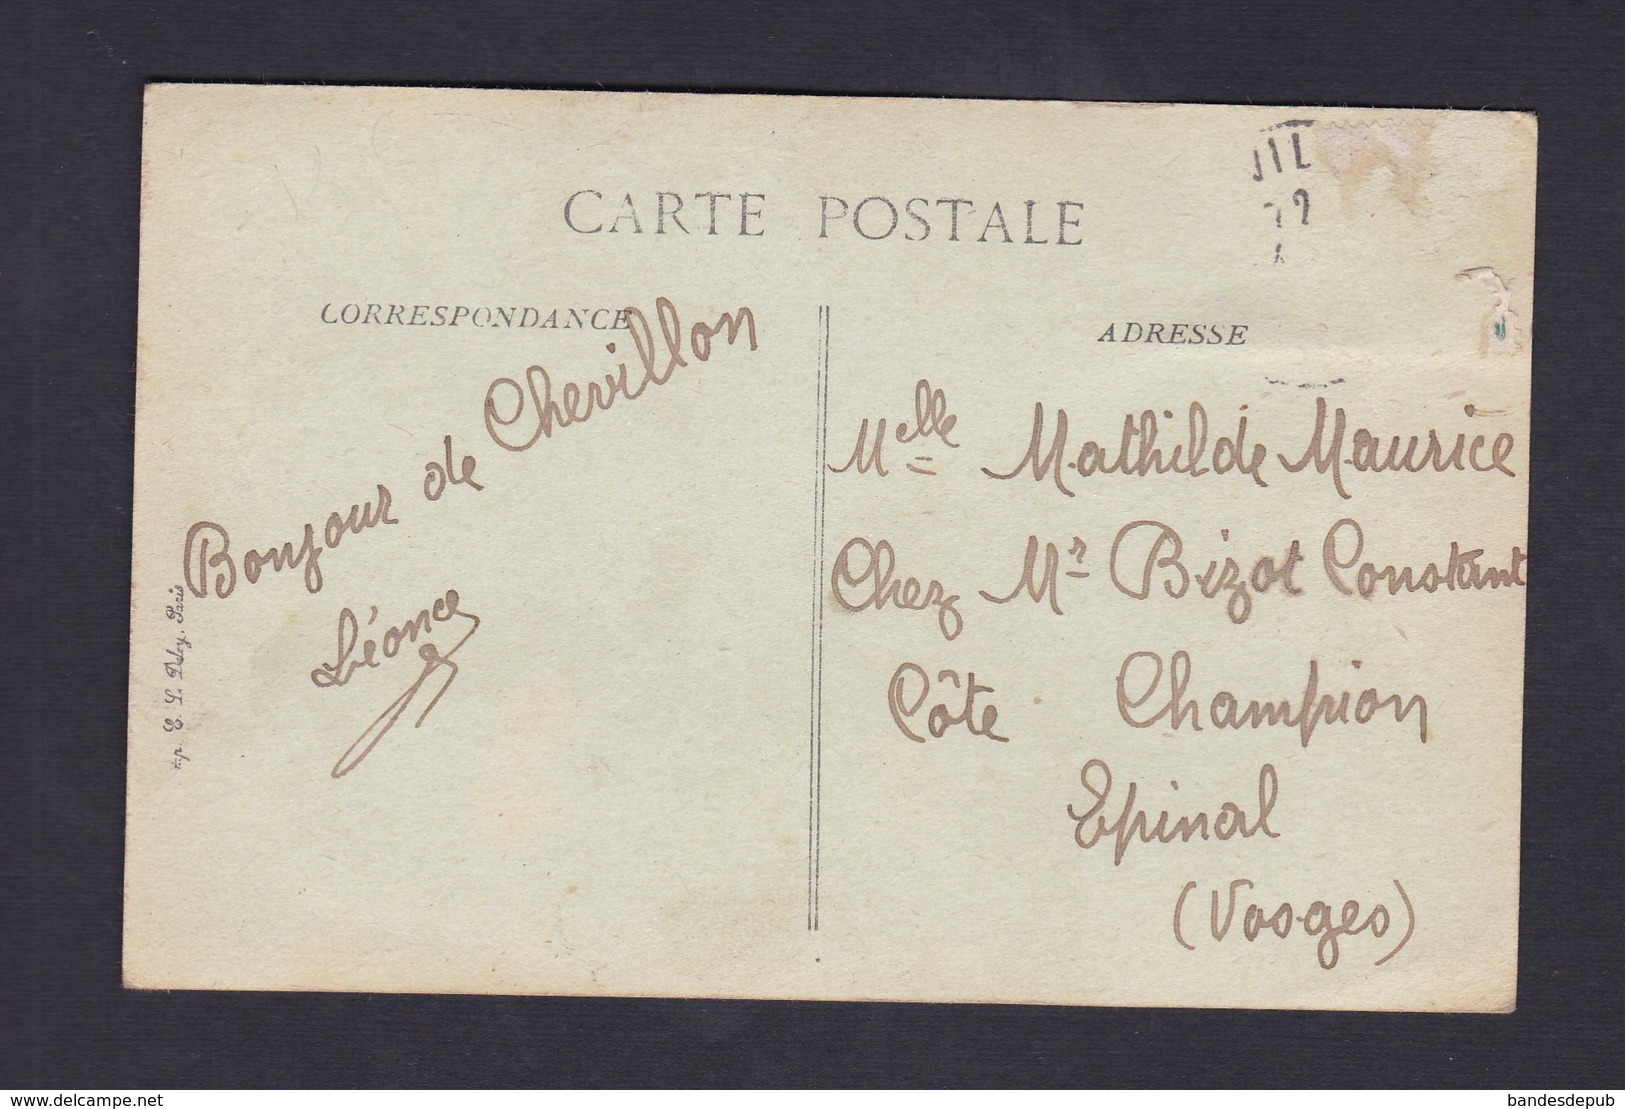 CARTE POSTALE
CORRESPONDANCE
ADRESSE
Bonjour de Chevillon
Léonce
Melle Mathilde Maurice
Chez Mr Bizot Constant
Côte Champion
Epinal
(Vosges)
Imp. E. L. Deley, Paris
www.delcampe.net
bandesdepub